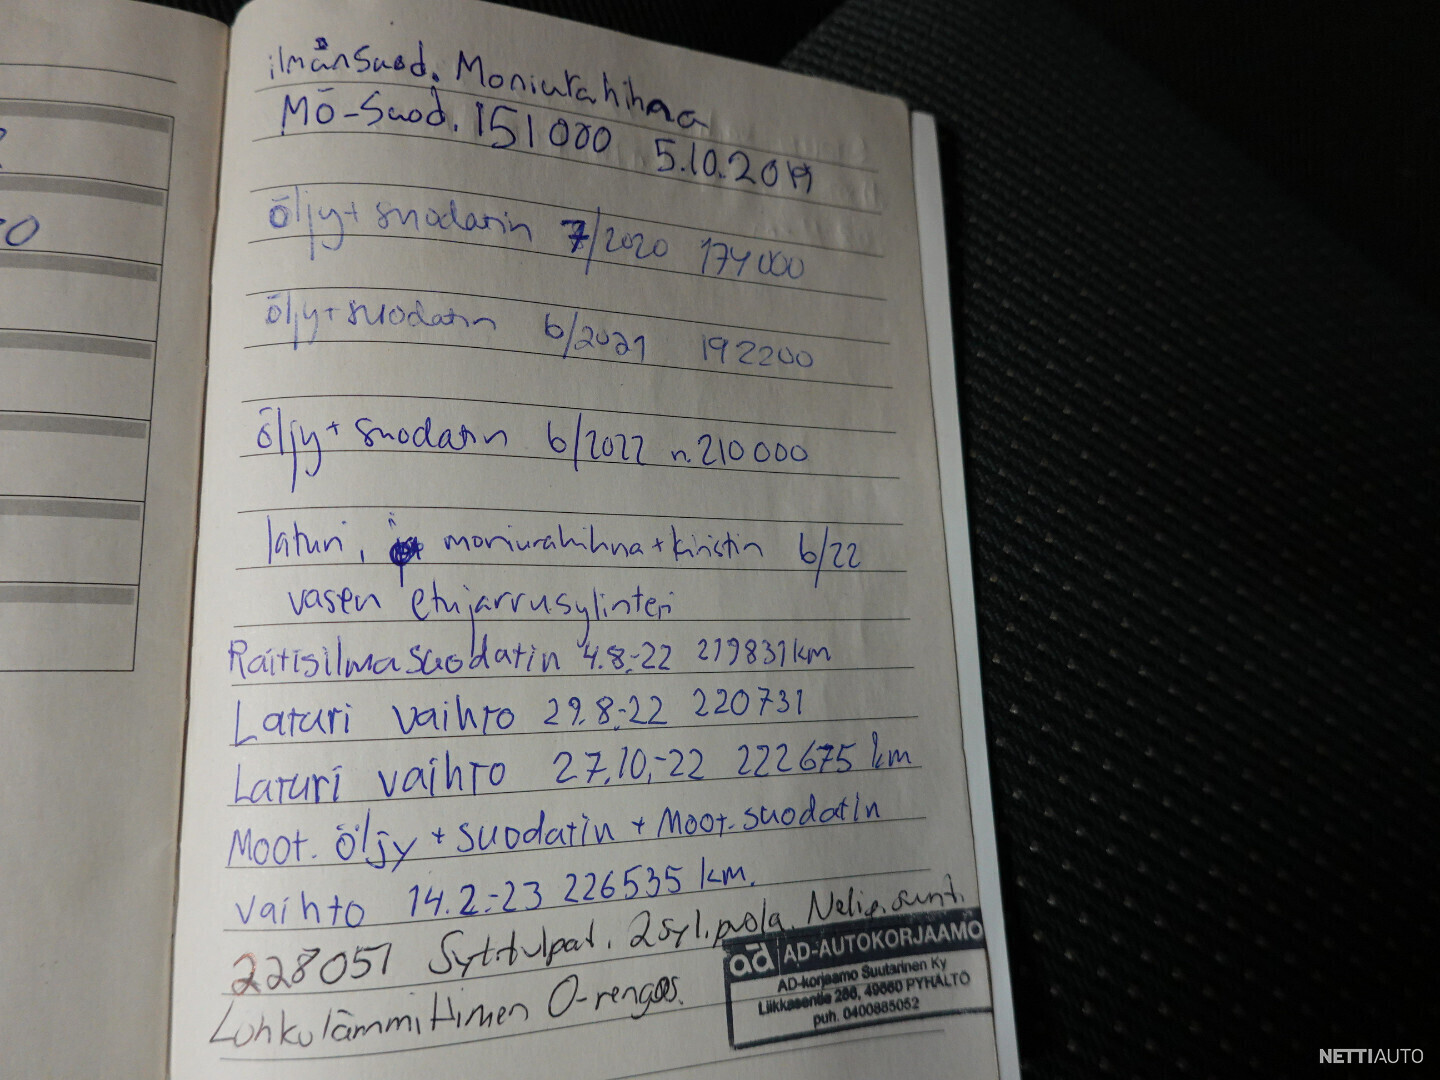 ilmansuod. Moniurahihna
MÖ-Suod. 151000 5.10.2019
öljy + suodatin 7/2020 174000
öljy + suodatin 6/2021 192200
öljy + suodatin 6/2022 n. 210 000
laturi, moniurahihna + kiristin 6/22
vasen etujarrusylinteri
Raitisilmasuodatin 4.8.-22 219831 km
Laturi vaihto 29.8.-22 220731
Laturi vaihto 27.10.-22 222675 km
Moot. öljy + suodatin + Moot.suodatin
vaihto 14.2.-23 226535 km.
228051 Syt.tulpat. 2syl. puola. Nelip.suunt.
Lohkolämmittimen O-rengas.
ad AD-AUTOKORJAAMO
AD-korjaamo Suutarinen Ky
Liikkasentie 286, 49660 PYHÄLTÖ
puh. 0400885052
NETTIAUTO